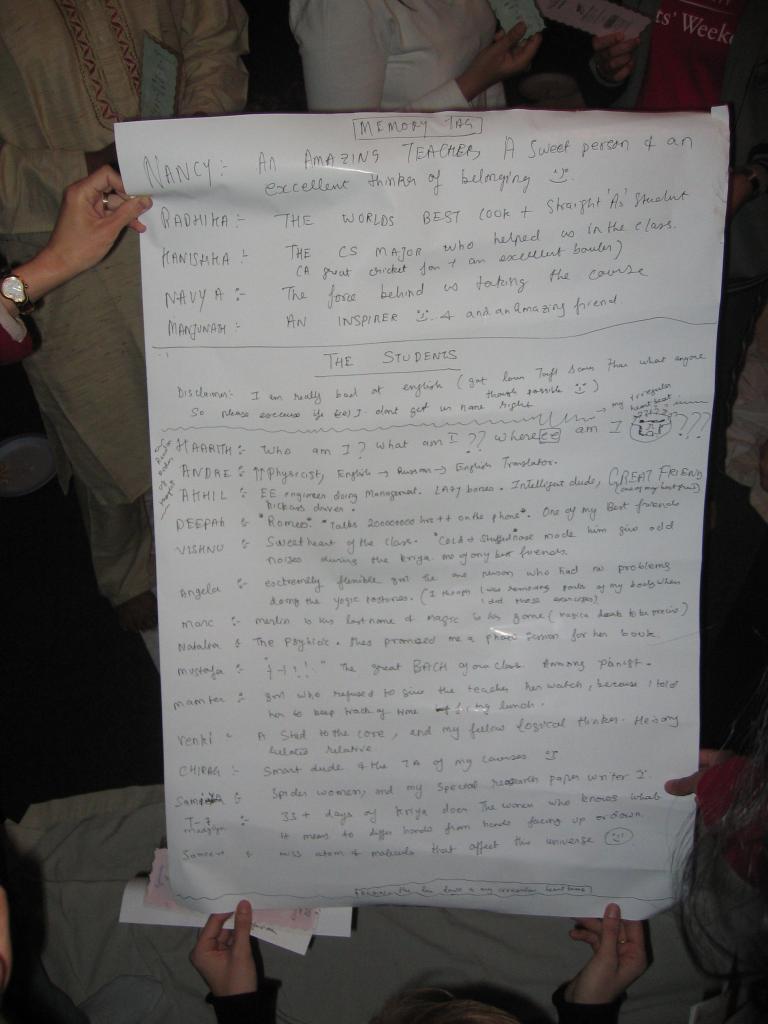 ts' Weeke
MEMORY TAG
NANCY:- AN AMAZING TEACHER, A Sweet person & an
excellent thinker of belonging
RADHIKA:- THE WORLDS BEST COOK + Straight 'As' Student
KANISHKA:- THE CS MAJOR who helped us in the class.
(A great cricket fan + an excellent bowler)
NAVYA:- The force behind us taking the course
MANJUNATH:- AN INSPIRER & and an Amazing friend.
THE STUDENTS
Disclaimer:- I am really bad at english (got lower Toefl Score than what anyone
though possible)
So please excuse if I dont get ur name right
my irregular
heart beat
HAARITH:- Who am I? What am I?? Where am I ???
ANDRE:- Physicist, English → Russian → English Translator.
AKHIL:- EE engineer doing Management. LAZY bones. Intelligent dude, GREAT FRIEND
(one of my best friends)
DEEPAK:- "Romeo". "Talks 20000000 hrs ++ on the phone". One of my Best friends
VISHNU:- Sweetheart of the class. "Cold & Stuffed nose made him give odd
noises during the kriya. one of my best friends.
Angela:- extremely flexible girl the one person who had no problems
doing the yogic postures. (I though I was removing parts of my body when
I did those exercises)
Marc:- merlin is his last name & magic is his game (magica to be precise)
Natalia:- The Psychic. Shes promised me a phone session for her book.
Mustafa:- "!!" The great BACH of our class. Amazing pianist.
Mamta:- girl who refused to give the teacher her watch, because I told
her to keep track of time lunch.
Venki:- A Stud to the core, and my fellow logical thinker. He is my
relative
CHIRAG:- Smart dude & the TA of my courses
Spider women, and my Special research paper writer
33+ days of kriya does The women who knows what
it means to differ hands from hands facing up or down.
miss atom & molecule that affect this universe